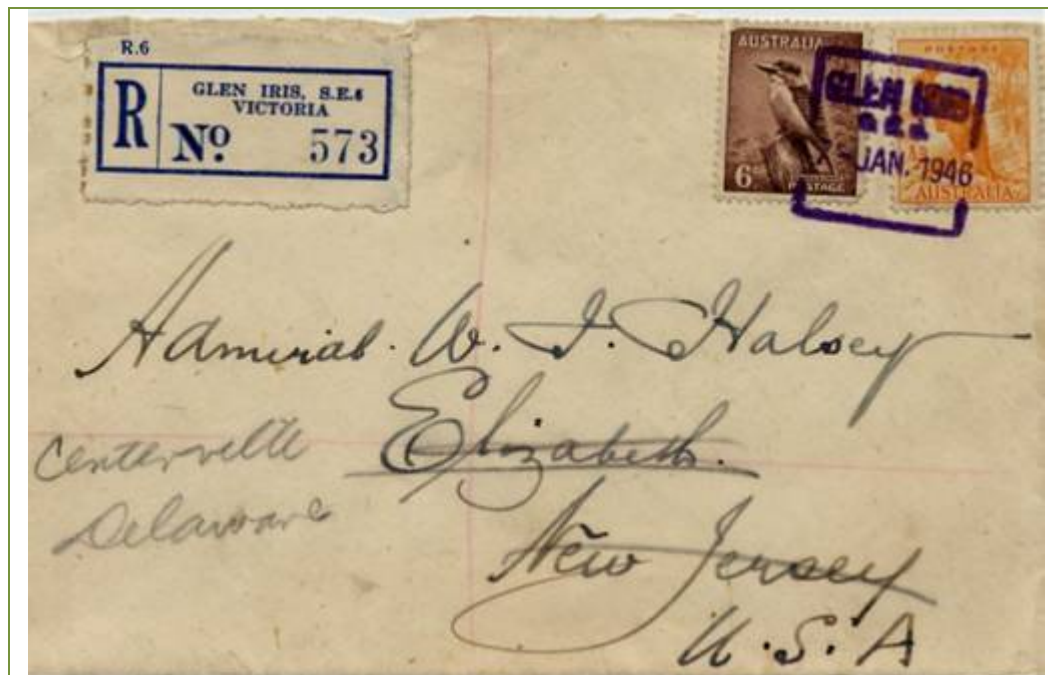 R.6
R
GLEN IRIS, S.E.6
VICTORIA
No. 573
AUSTRALIA
6
POSTAGE
POSTAGE
AUSTRALIA
GLEN IRIS
JAN. 1946
Admiral. W. F. Halsey
Elizabeth.
New Jersey
U.S.A
Centerville
Delaware